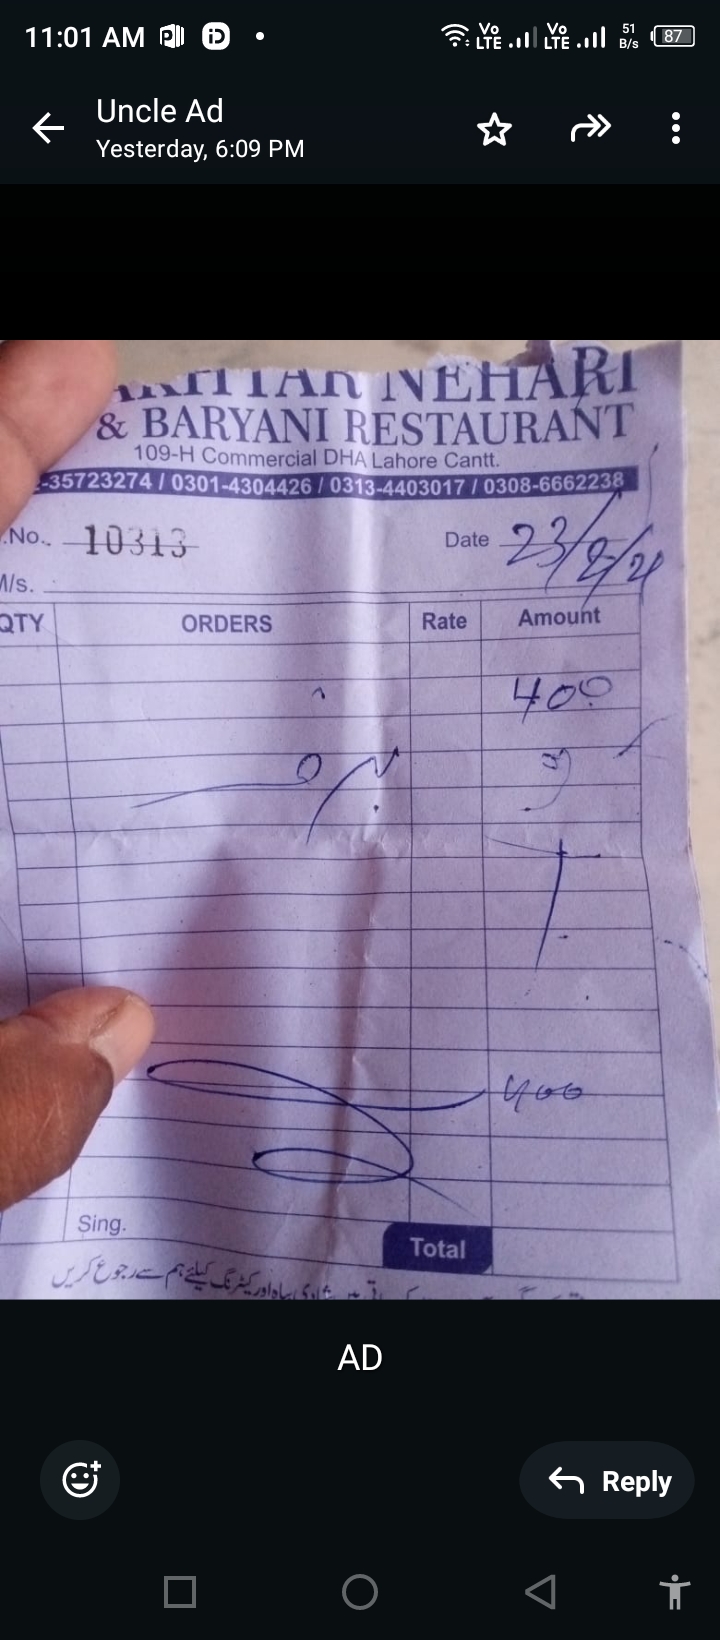 11:01 AM
Vo LTE Vo LTE 51 B/s 87
Uncle Ad
Yesterday, 6:09 PM
AKHTAR NEHARI
& BARYANI RESTAURANT
109-H Commercial DHA Lahore Cantt.
-35723274 / 0301-4304426 / 0313-4403017 / 0308-6662238
.No. 10313 Date 23/2/
M/s.
QTY ORDERS Rate Amount
400
400
Sing. Total
کیلئے ہم سے رجوع کریں
AD
Reply